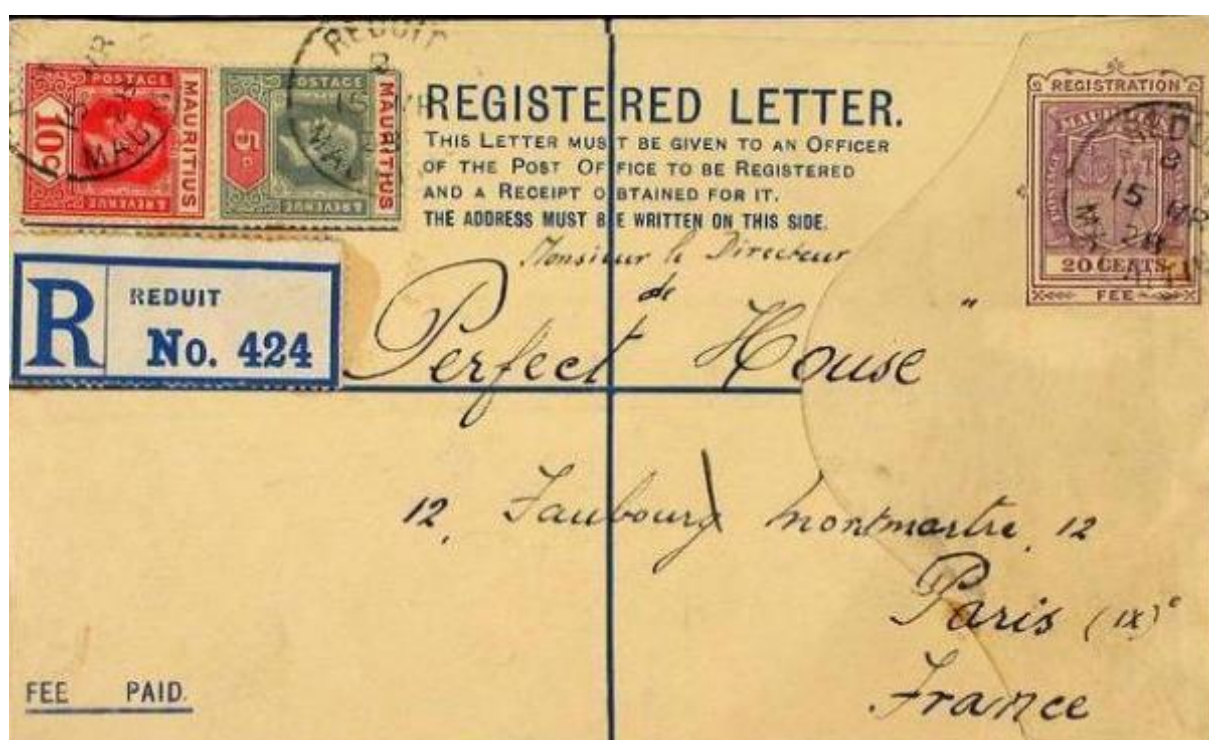 REDUIT
MAU
10c
POSTAGE
& REVENUE
MAURITIUS
REDUIT
B
MAU
5c
POSTAGE
& REVENUE
MAURITIUS
REGISTERED LETTER.
THIS LETTER MUST BE GIVEN TO AN OFFICER
OF THE POST OFFICE TO BE REGISTERED
AND A RECEIPT OBTAINED FOR IT.
THE ADDRESS MUST BE WRITTEN ON THIS SIDE.
REGISTRATION
MAURITIUS
B
15 MR
20 CENTS
FEE
R
REDUIT
No. 424
Monsieur le Directeur
de "
Perfect House
12, Faubourg Montmartre, 12
Paris (IX)e
France
FEE PAID.